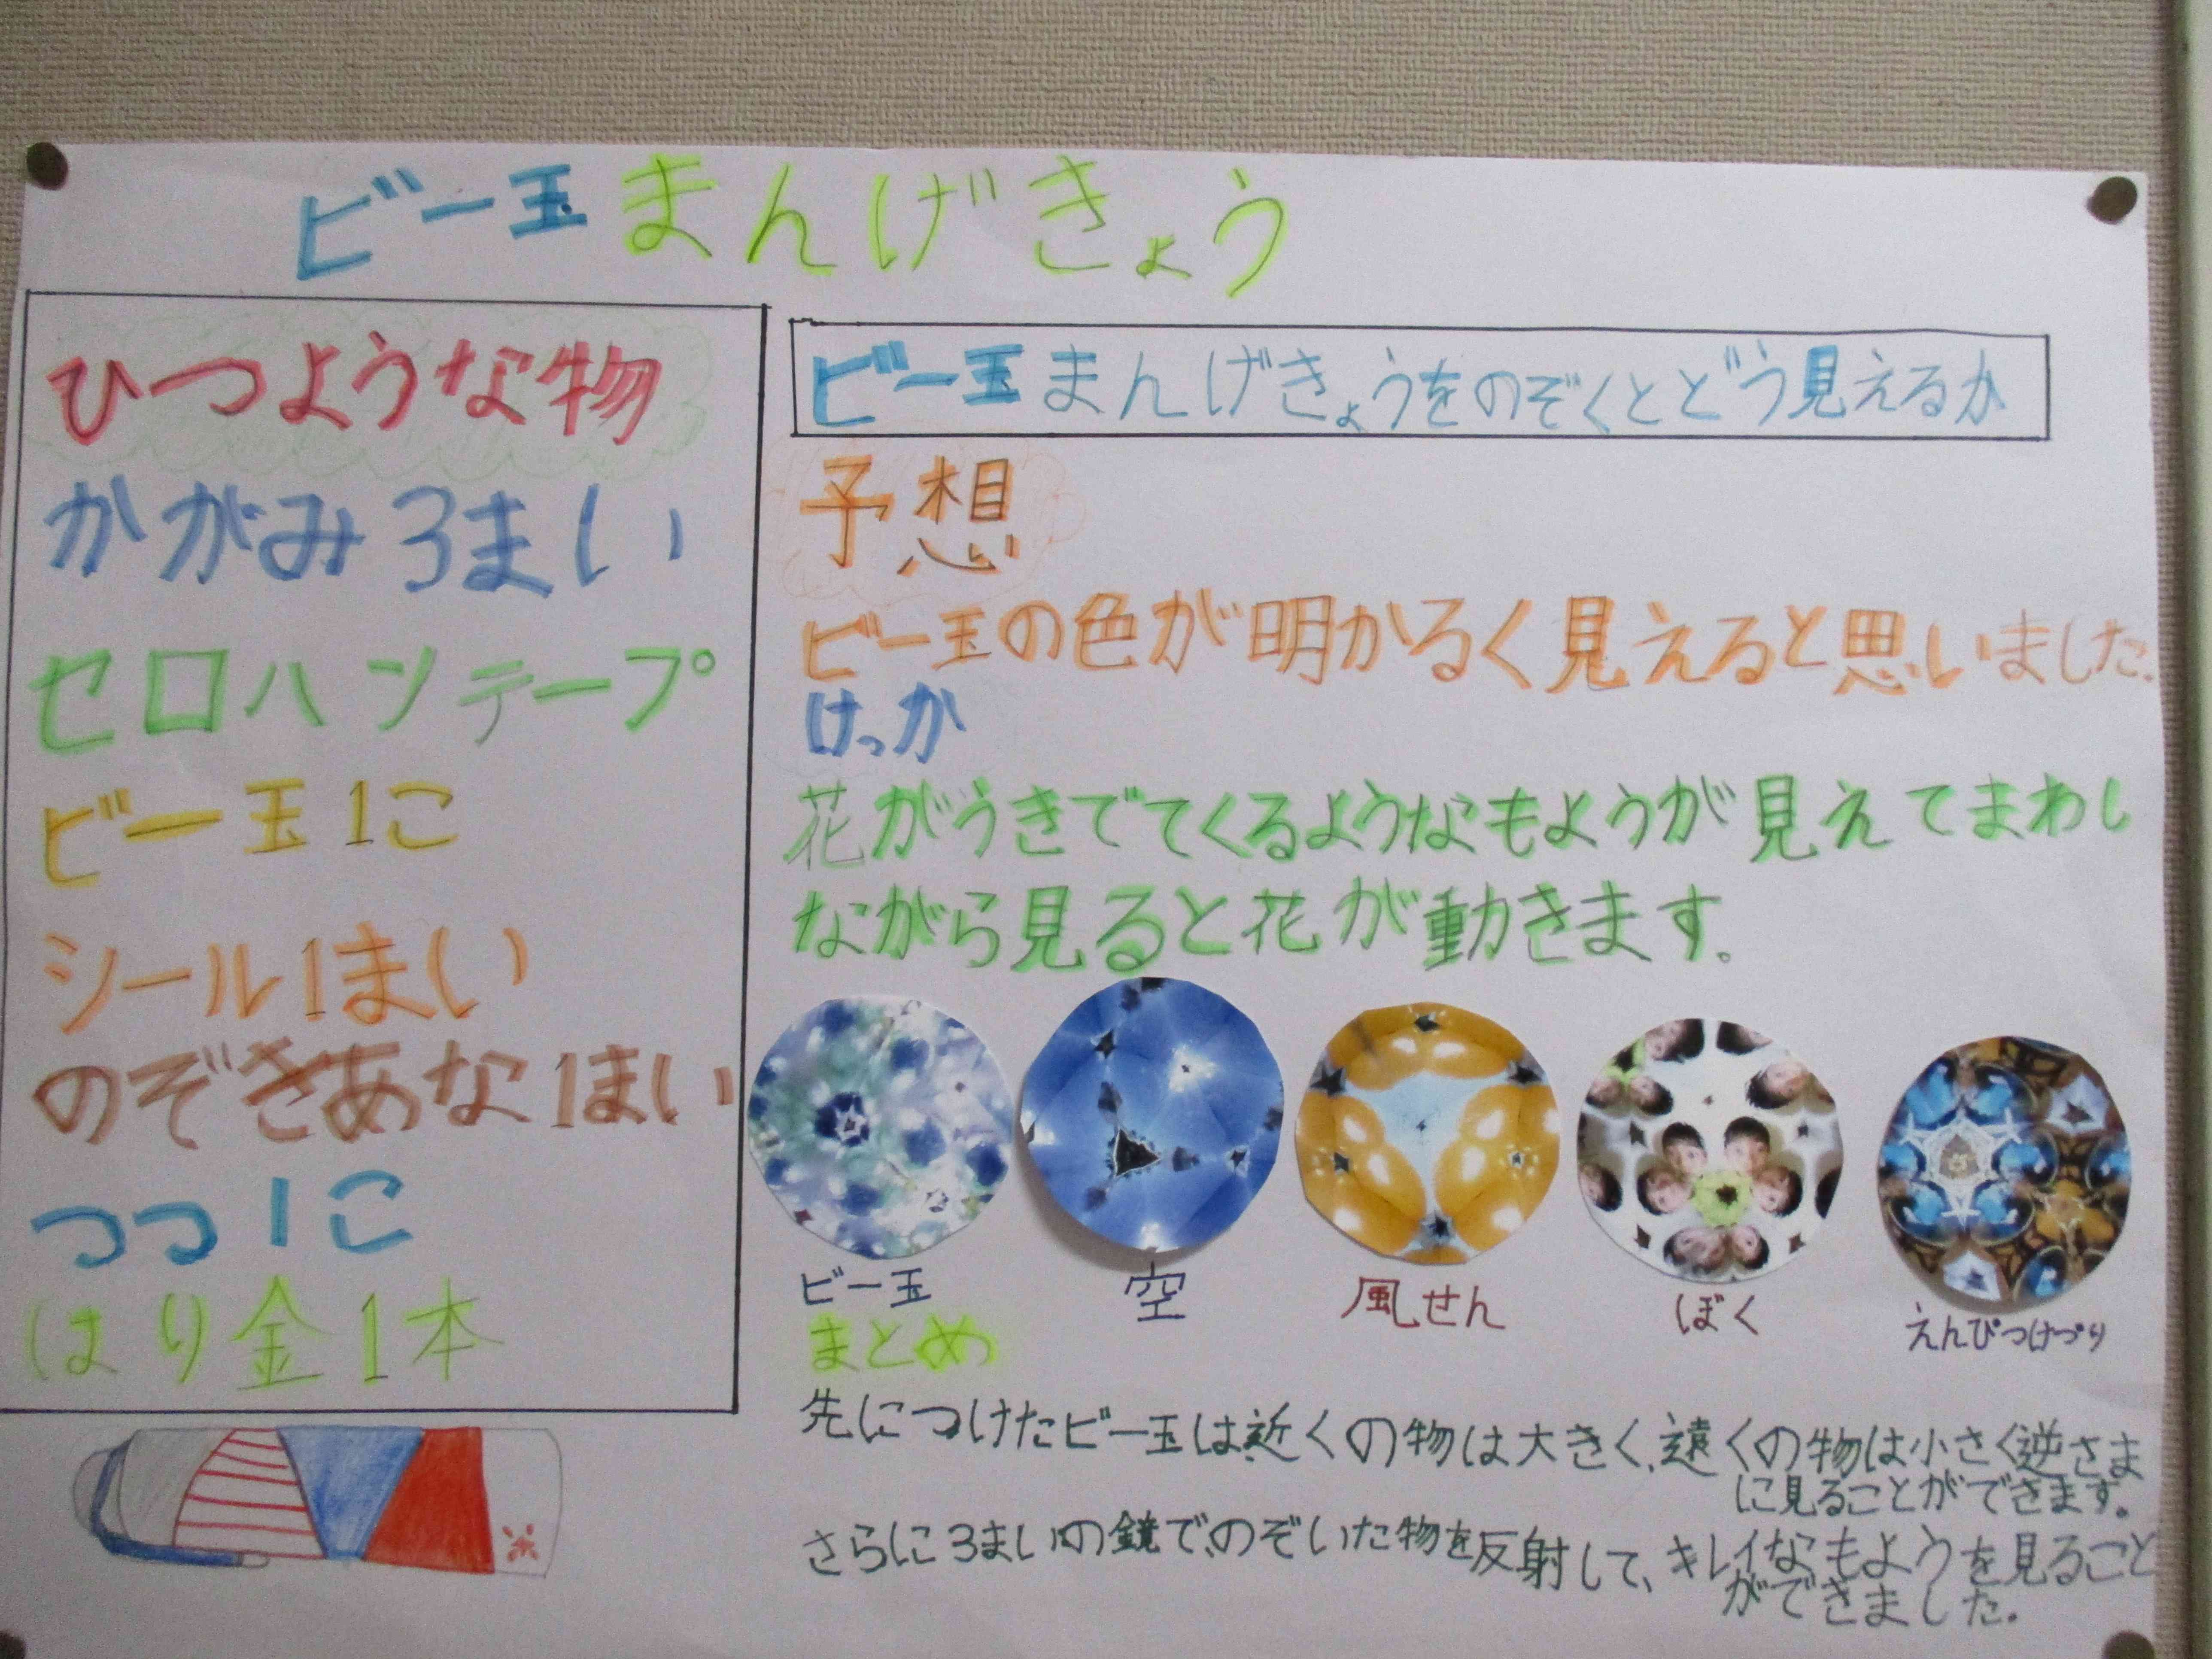 ビー玉まんげきょう
ひつような物
かがみ3まい
セロハンテープ
ビー玉1こ
シール1まい
のぞきあな1まい
つつ1こ
はり金1本
ビー玉まんげきょうをのぞくとどう見えるか
予想
ビー玉の色が明かるく見えると思いました。
けっか
花がうきでてくるようなもようが見えてまわし
ながら見ると花が動きます。
ビー玉
空
風せん
ぼく
えんぴつけづり
まとめ
先につけたビー玉は、近くの物は大きく、遠くの物は小さく逆さま
に見ることができます。
さらに3まいの鏡で、のぞいた物を反射して、キレイなもようを見ること
ができました。